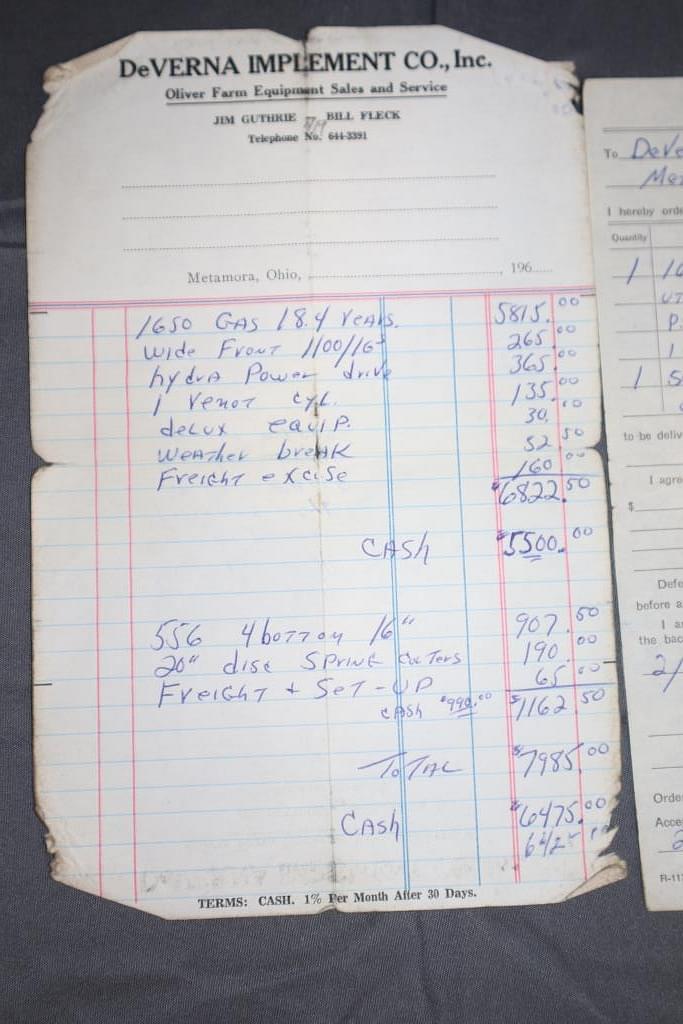 DeVERNA IMPLEMENT CO., Inc.
Oliver Farm Equipment Sales and Service
JIM GUTHRIE BILL FLECK
Telephone No. 644-3391
Metamora, Ohio, 196
1650 GAS 18.4 rears. 5815.00
Wide Front 1100/16 265.00
hydra Power drive 365.00
1 cyl. 135.00
deLux equip. 30.00
weather break 52.50
Freight excise 160.00
$6822.50
CASh $5500.00
556 4 bottom 16" 907.50
20" disc Spring 190.00
Freight + Set-UP 65.00
cash $990.00 $1162.50
ToTAL $7985.00
Cash $6475.00
642
TERMS: CASH. 1% Per Month After 30 Days.
To DeVe
Me
I hereby orde
Quantity
1 10
UT
P.
1
1 S
to be deliv
I agre
$
Defe
before a
I a
the bac
2/
Orde
Acce
2
R-11